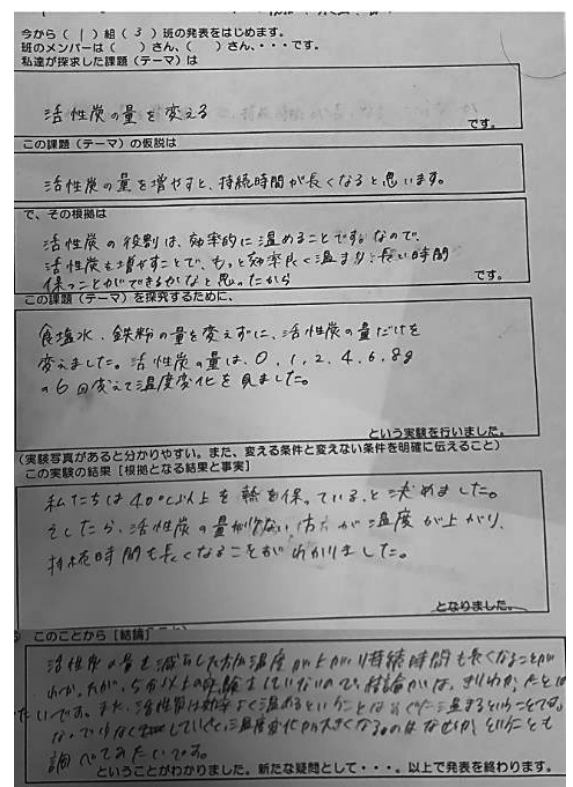 今から（ 1 ）組（ 3 ）班の発表をはじめます。
班のメンバーは（　）さん、（　）さん、・・・です。
私達が探求した課題（テーマ）は
活性炭の量を変える
です。
この課題（テーマ）の仮説は
活性炭の量を増やすと、持続時間が長くなると思います。
で、その根拠は
活性炭の役割は、効率的に温めることです。なので、
活性炭を増やすことで、もっと効率良く温まり、長い時間
保つことができるかなと思ったから
です。
この課題（テーマ）を探究するために、
食塩水、鉄粉の量を変えずに、活性炭の量だけを
変えました。活性炭の量は、0、1、2、4、6、8g
の6回変えて温度変化を見ました。
という実験を行いました。
（実験写真があると分かりやすい。また、変える条件と変えない条件を明確に伝えること）
この実験の結果［根拠となる結果と事実］
私たちは40℃以上を 保っている、と決めました。
そしたら、活性炭の量が少ない方が温度が上がり、
持続時間も長くなることがわかりました。
となりました。
このことから［結論］
活性炭の量を減らした方が温度が上がり持続時間も長くなることが
わかったが、5分以上の実験をしていないので、結論が
たいです。また、活性炭は効率よく温めるということは
していくと、温度変化が大きくなるのはなぜか、ということも
調べてみたいです。
ということがわかりました。新たな疑問として・・・。以上で発表を終わります。